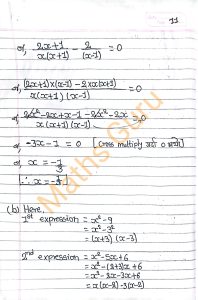 11
or, 2x+1 / x(x+1) - 2 / (x-1) = 0
or, (2x+1)×(x-1) - 2×x(x+1) / x(x+1)(x-1) = 0
or, 2x²-2x+x-1-2x²-2x / x(x+1)(x-1) = 0
or, -3x-1 = 0 [cross multiply
or x = -1/3
∴ x = -1/3
(b) Here,
1st expression = x²-9
= x²-3²
= (x+3) (x-3)
IInd expression = x²-5x+6
= x²-(2+3)x+6
= x²-2x-3x+6
= x(x-2)-3(x-2)
Maths Guru